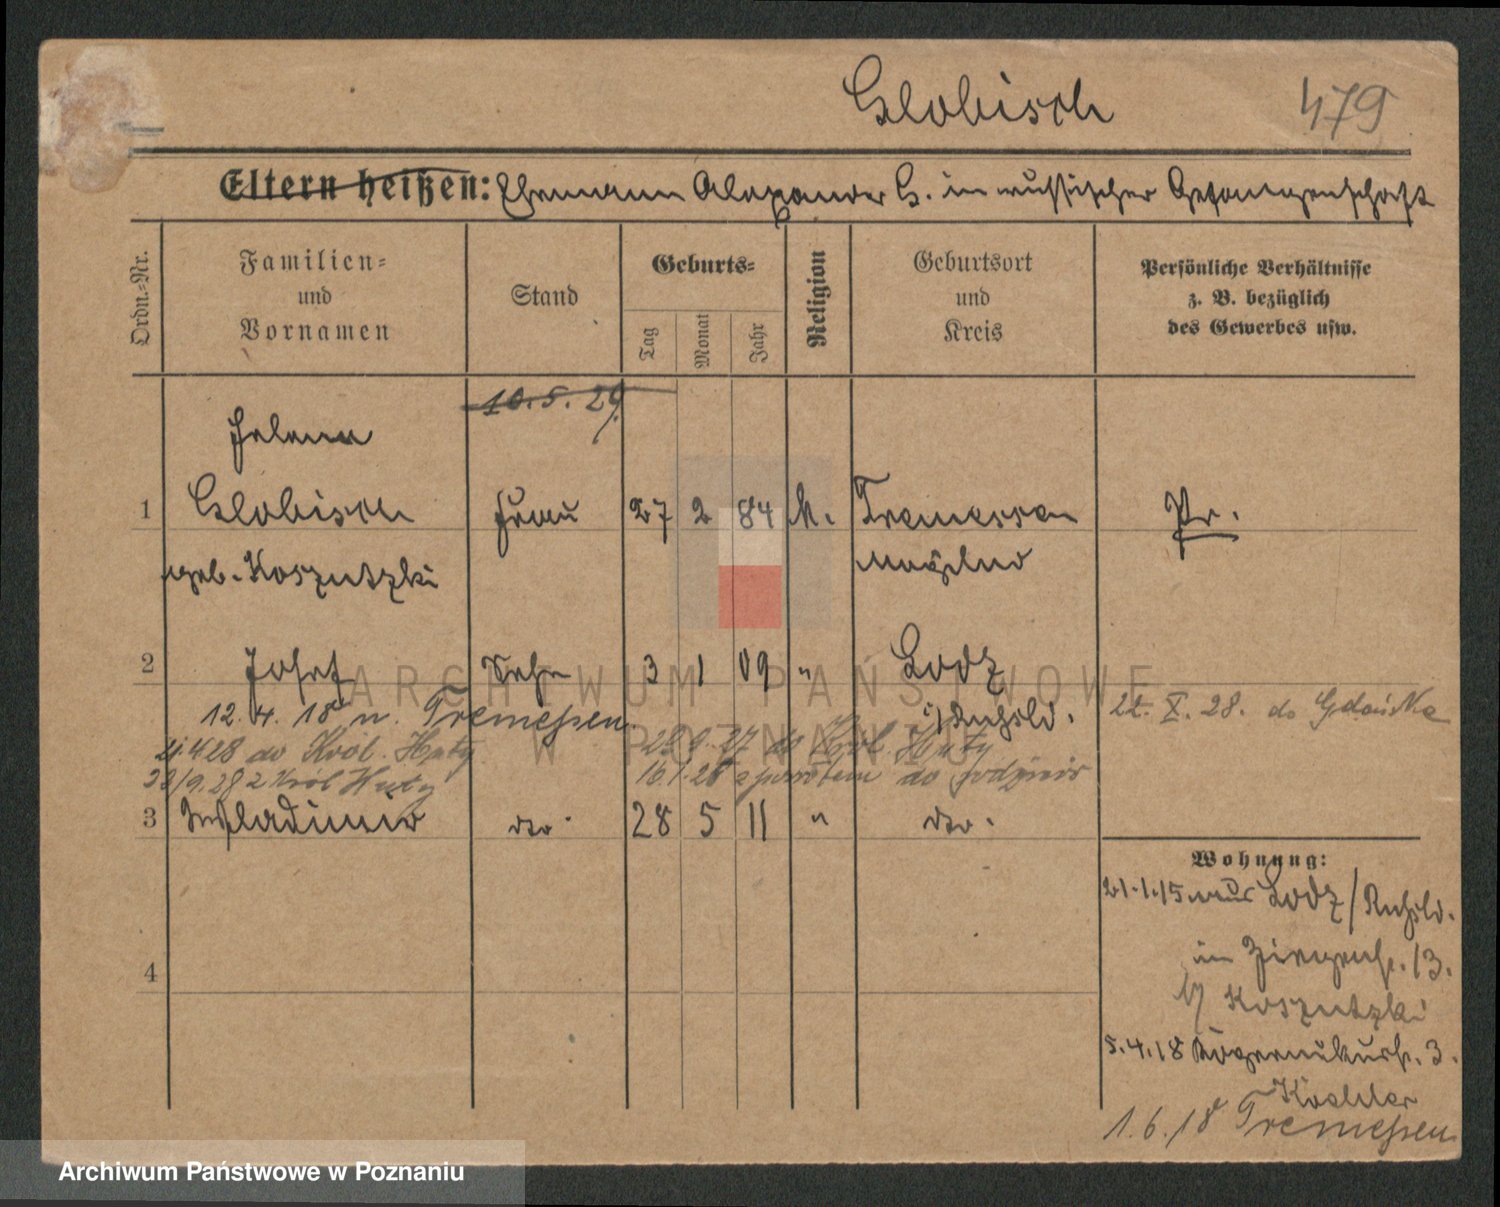 Globisch 479
Eltern heißen: Ehemann Alexander G. in russischer Gefangenschaft
Ordn.-Nr.
Familien-
und
Vornamen
Stand
Geburts-
Tag
Monat
Jahr
Religion
Geburtsort
und
Kreis
Persönliche Verhältnisse
z. B. bezüglich
des Gewerbes usw.
10.5.29
Helene
1 Globisch Frau 27 2 84 k. Tremessen Pr.
geb. Koszutzki Mogilno
2 Josef Sohn 3 1 09 " Lodz
12.4.18 n. Tremessen. i/Rußld. 22. X. 28. do Gdańska
4.4.28 do Król. Huty 28.9.27 do Król. Huty
30/9.28 z Król Huty 16.1.28 z powrotem do
3 Wladimir dto. 28 5 11 " dto.
4
Wohnung:
21.1.15 aus Lodz/Rußld.
13.
b/ Koszutzki
5.4.18 3.
Koehler
1.6.18 Tremessen
ARCHIWUM PAŃSTWOWE
W POZNANIU
Archiwum Państwowe w Poznaniu